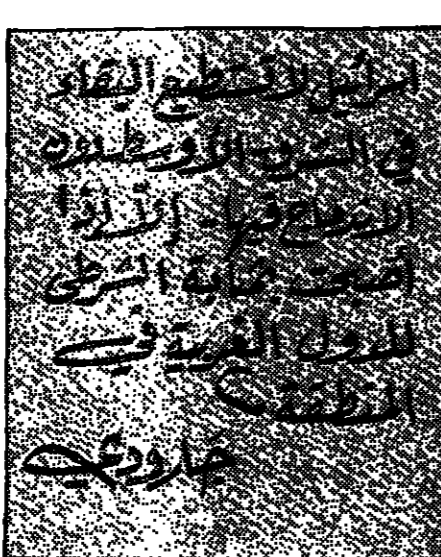 اسرائيل لا تستطيع البقاء
في الشرق الأوسط بدون
الاندماج فيها. إلا إذا
أصبحت بمثابة الشرطي
للدول الغربية في
المنطقة
جارودي